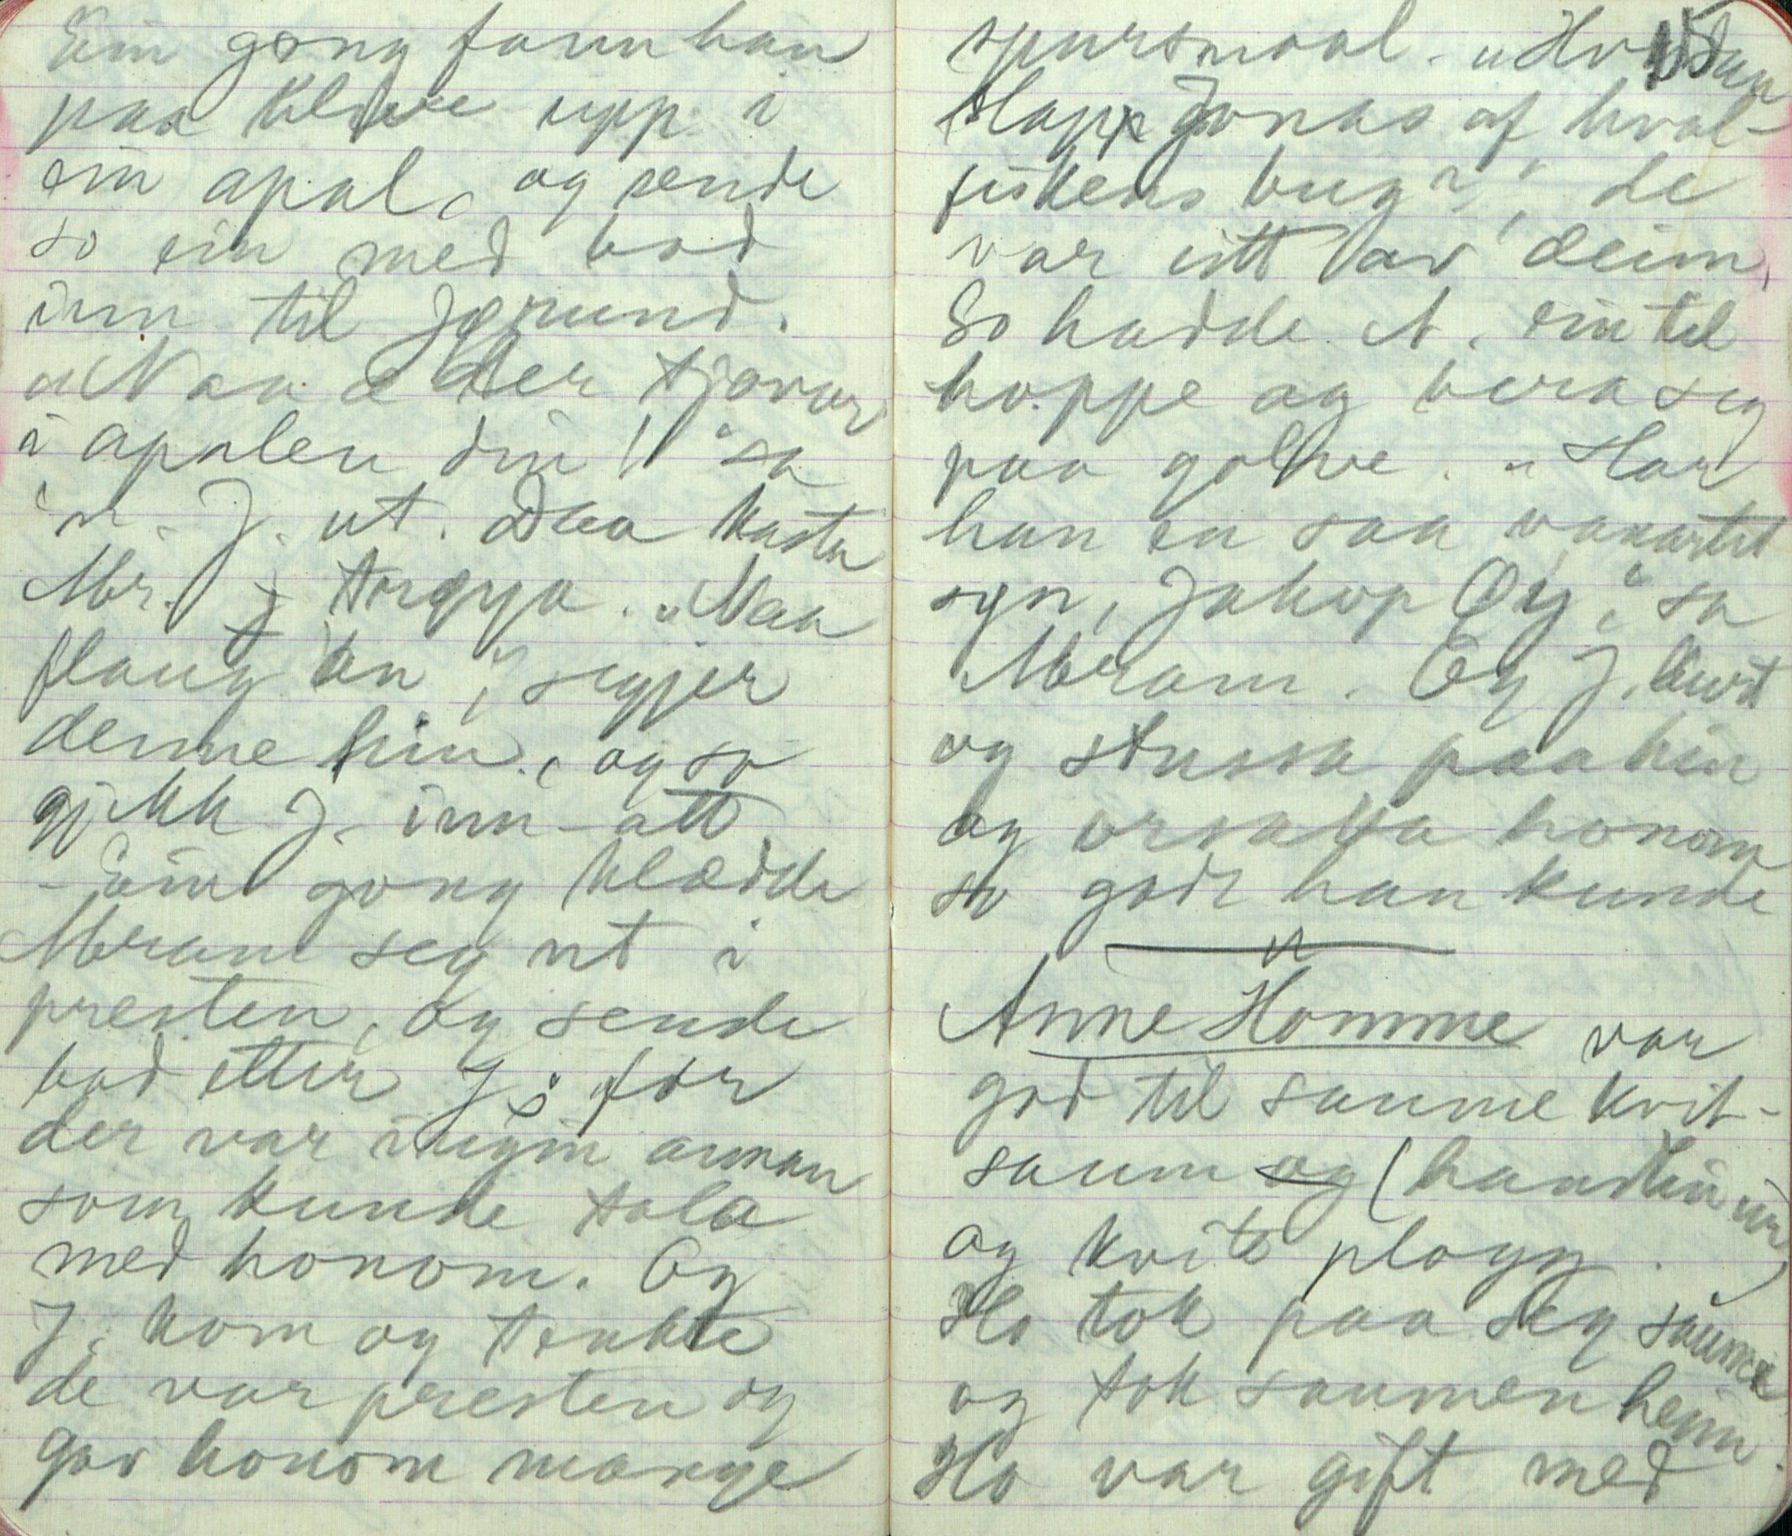 Ein gong fann han
paa klive upp i
ein apal, og sende
so ein med bod
inn til Jørund.
"Naa æ der tjovar
i apalen din!" sa
'n. J. ut. Daa kasta
Abr. j torvya. "Naa
flaug 'an", segjer
denne hin, og so
gjekk J. inn att.
- Ein gong klædde
Abram seg ut i
presten, og sende
bod etter J; for
der var ingin annan
som kunde tala
med honom. Og
J. kom og tenkte
de var presten og
gav honom mange
spursmaal. "Hvordan
slapp Jonas af hval-
fiskens bug?", de
var eitt av deim,
So hadde A. ein til
hoppe og bera seg
paa golve. "Har
han en saa vanartet
søn, Jakop Øy", sa
Abram. Og J.
og stussa paa hin
og orsaka honom
so godt han kunde
Anne Homme var
god til saume kvit-
saum og (handlin
og kvite plagg.)
Ho tok paa seg sauma
og tok saumen heim.
Ho var gift med